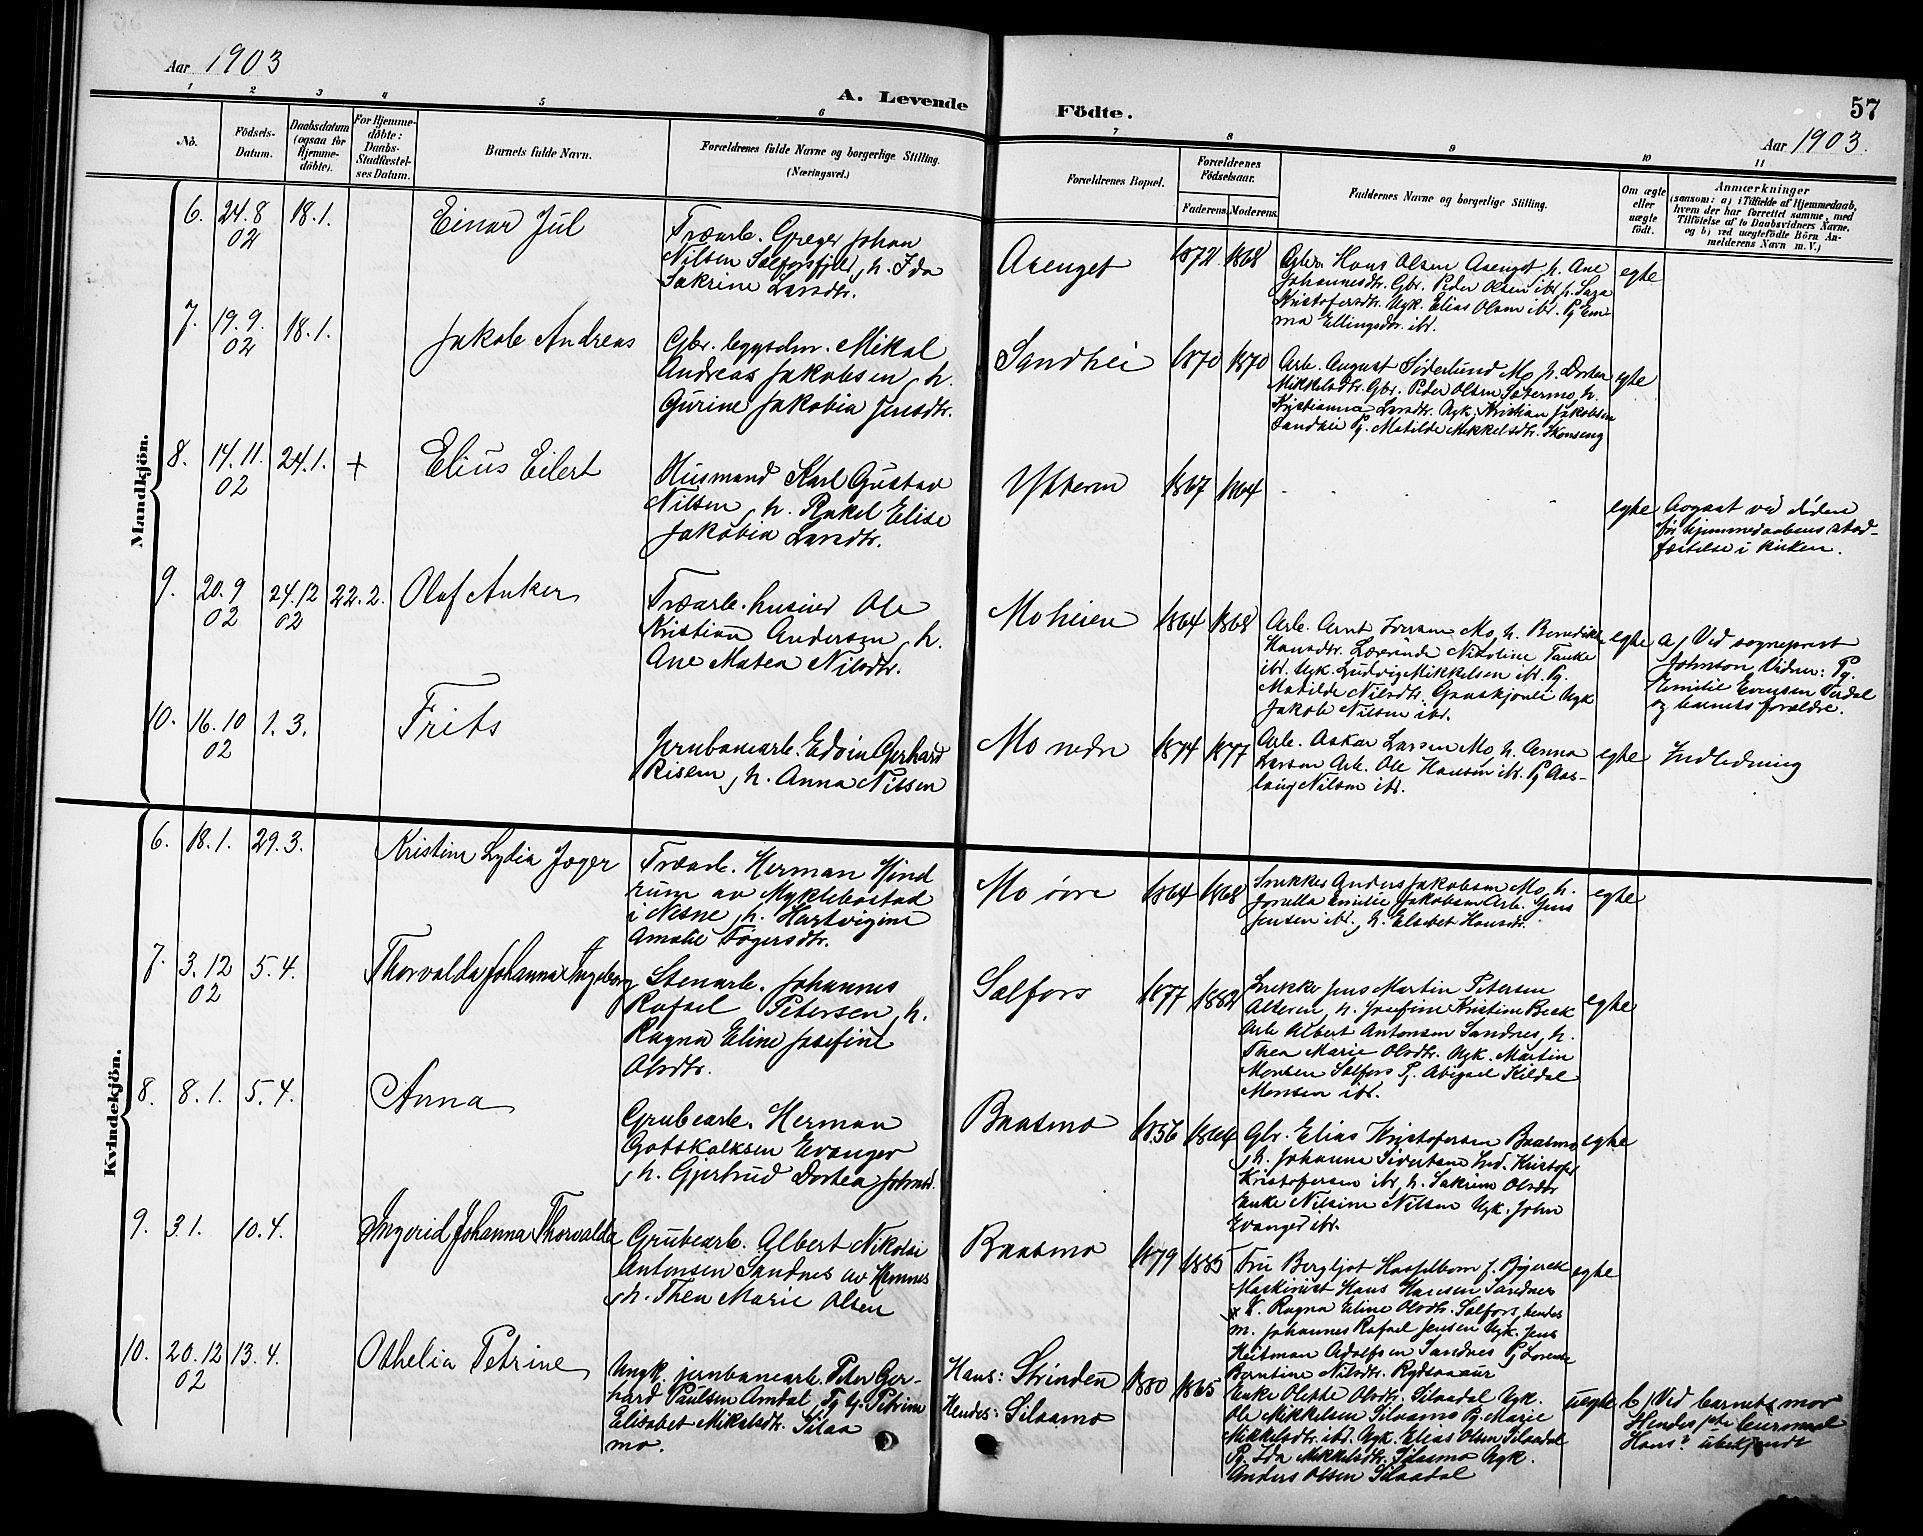 Aar 1903
A. Levende Födte.
57
Aar 1903.
1 2 3 4 5 6 7 8 9 10 11
No.
Födsels-
Datum.
Daabsdatum
(ogsaa for
Hjemme-
döbte).
For Hjemme-
döbte:
Daabs-
Stadfæstel-
ses Datum.
Barnets fulde Navn.
Forældrenes fulde Navne og borgerlige Stilling.
(Næringsvei.)
Forældrenes Bopæl.
Forældrenes
Födselsaar.
Faderens. Moderens.
Faddernes Navne og borgerlige Stilling.
Om ægte
eller
uægte
født.
Anmærkninger
(saasom: a) i Tilfælde af Hjemmedaab,
hvem der har forrettet samme, med
Tilföielse af to Daabsvidners Navne,
og b) ved uegtefödte Börn An-
melderens Navn m. V.)
Mandkjön.
6. 24.8
02
18.1.
Einar Jul
Træarb. Greger Johan
Nilsen Selforsfjeld, h. Ida
Sakrine Larsdtr.
Asenget
1872 1868
Gbr. Hans Olsen Asenget h. Ane
Johannesdtr. Gbr. Peder Olsen ibd. h. Sara
Kristofersdtr. Ugk. Elias Olsen ibd. Pg Em-
ma Ellingsdtr. ibd.
egte
7. 19.9.
02
18.1.
Jakob Andreas
Gbr. bygsdm. Mikal
Andreas Jakobsen, h.
Gurine Jakobia Jensdtr.
Sandhei
1870 1870
Arb. August Søderlund Mo, h. Dortea
Mikkelsdtr. Gbr. Peder Olsen Sætermo, h.
Kristianna Larsdtr. Ugk. Kristian Jakobsen
Sandhei Pg. Matilde Mikkelsdtr. Skonseng
egte
8. 14.11.
02
24.1. +
Elius Eilert
Husmand Karl Gustav
Nilsen, h. Rakel Elise
Jakobia Larsdtr.
Ytteren
1867 1864
egte
Avgaat ved døden
før hjemmedaabens stad-
fæstelse i kirken.
9. 20.9
02
24.12
02
22.2.
Olaf Anker
Træarb. huseier Ole
Kristian Andersen, h.
Ane Matea Nilsdtr.
Moheien
1864 1868
Arb. Arnt Iversen Mo, h. Benedikte
Hansdtr. Lærerinde Nikoline Tanke
ibd. Ugk. Ludvig Mikkelsen ibd. Pg.
Matilde Nilsdtr. Ugk
Jakob Nilsen ibd.
egte
a) Ved sogneprest
Johnson Vidner: Pg.
Emilie Evensen Verdal
og barnets forældre.
10. 16.10
02
1.3.
Frits
Jernbanearb. Edvin Gerhard
Risen, h. Anna Nilsen
Mo nedre
1874 1877
Arb. Oskar Larsen Mo, h. Anna
Larsen Arb. Ole Hansen ibd. Pg Aas-
laug Nilsen ibd.
egte
Indledning
Kvindekjön.
6. 18.1. 29.3.
Kristine Lydia Joger
Træarb. Herman Hind
rum av Myklebostad
i Nesne, h. Hartvigine
Amalie Tøgersdtr.
Mo øvre
1864 1868
Snekker Anders Jakobsen Mo, h.
Emilie Jakobsen Arb. Jens
Jensen ibd., h. Elsebet Hansdtr.
egte
7. 3.12
02
5.4.
Thorvalda Johanna Ingeborg
Stenarb. Johannes
Rafael Petersen, h.
Ragna Eline Josefine
Olsdtr.
Selfors
1877 1882
Snekker Jens Martin Petersen
Alteren, h. Josefine Kristine Beck
Arb Albert Antonsen Sandnes, h.
Thea Marie Olsdtr. Ugk. Martin
Monsen Selfors Pg. Abigael Kildal
Monsen ibd.
egte
8. 8.1. 5.4.
Anna
Grubearb. Herman
Gotskalksen Evanger
, h. Gjertrud Dortea Johnsd.
Baasmo
1856 1864
Gbr. Elias Kristofersen Baasmo
, h. Johanna Sivertsen Ind. Kristofer
Kristofersen ibd., h. Sakrine Olsdtr
Enke Nilsine Nilsen Ugk. John
Evanger ibd.
egte
9. 3.1. 10.4.
Ingerid Johanna Thorvalda
Grubearb. Albert Nikolai
Antonsen Sandnes av Hemnes
, h. Thea Marie Olsen
Baasmo
1879 1885
Fru Bergljot Hasselbom f. Bjerck
Maskinist Hans Hansen Sandnes
x K. Ragna Eline Olsdtr. Selfors, hendes
m. Johannes Rafael Jensen Ugk. Jens
Heitman Adolfsen Sandnes Pg Lorense
Berntine Nilsdtr. Rydsaaur
egte
10. 20.12
02
13.4.
Othelia Petrine
Ungk. jernbanearb. Peter Ger-
hard Paulsen Amdal, Pg. Petrine
Elisabet Mikalsdtr. Silaa
mo.
Hans: Strinden
Hendes: Silaamo
1880 1865
Enke Olekke Olsdtr. Silaadal Ugk.
Ole Mikkelsen Silaamo Pg. Marie
Mikkelsdtr. ibd. Ugk. Elias Olsen Silaadal
Pg. Ida Mikkelsdtr. Silaamo Ugk.
Anders Olsen Silaadal
uegte
b) Ved barnets mor
Hendes 1ste leiermaal
Hans? ubekjendt